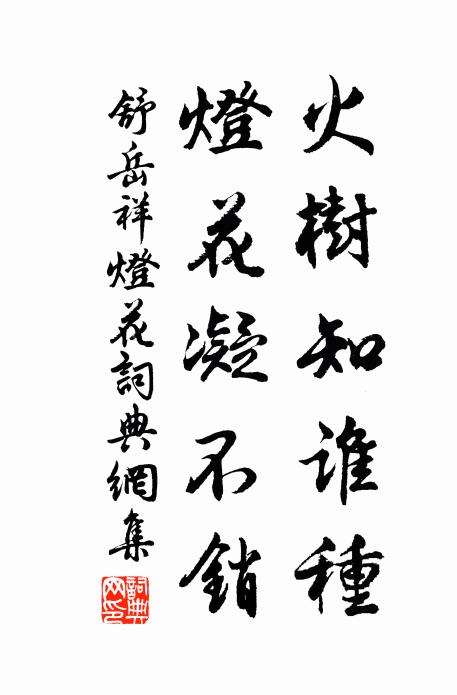 火樹知誰種
燈花凝不銷
舒岳祥燈花詞典網集
詞典网印